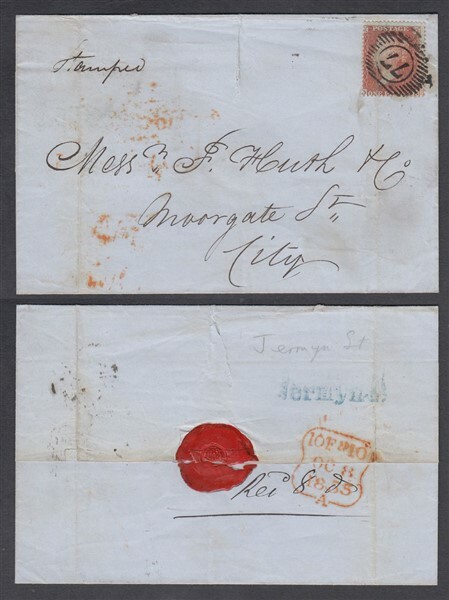 Stamped
POSTAGE
77
Mess.rs F. Huth & Co
Moorgate St.
City
Jermyn St
Jermyn-St
10FN10
OC 8
1855
A
Rec.d 8 do